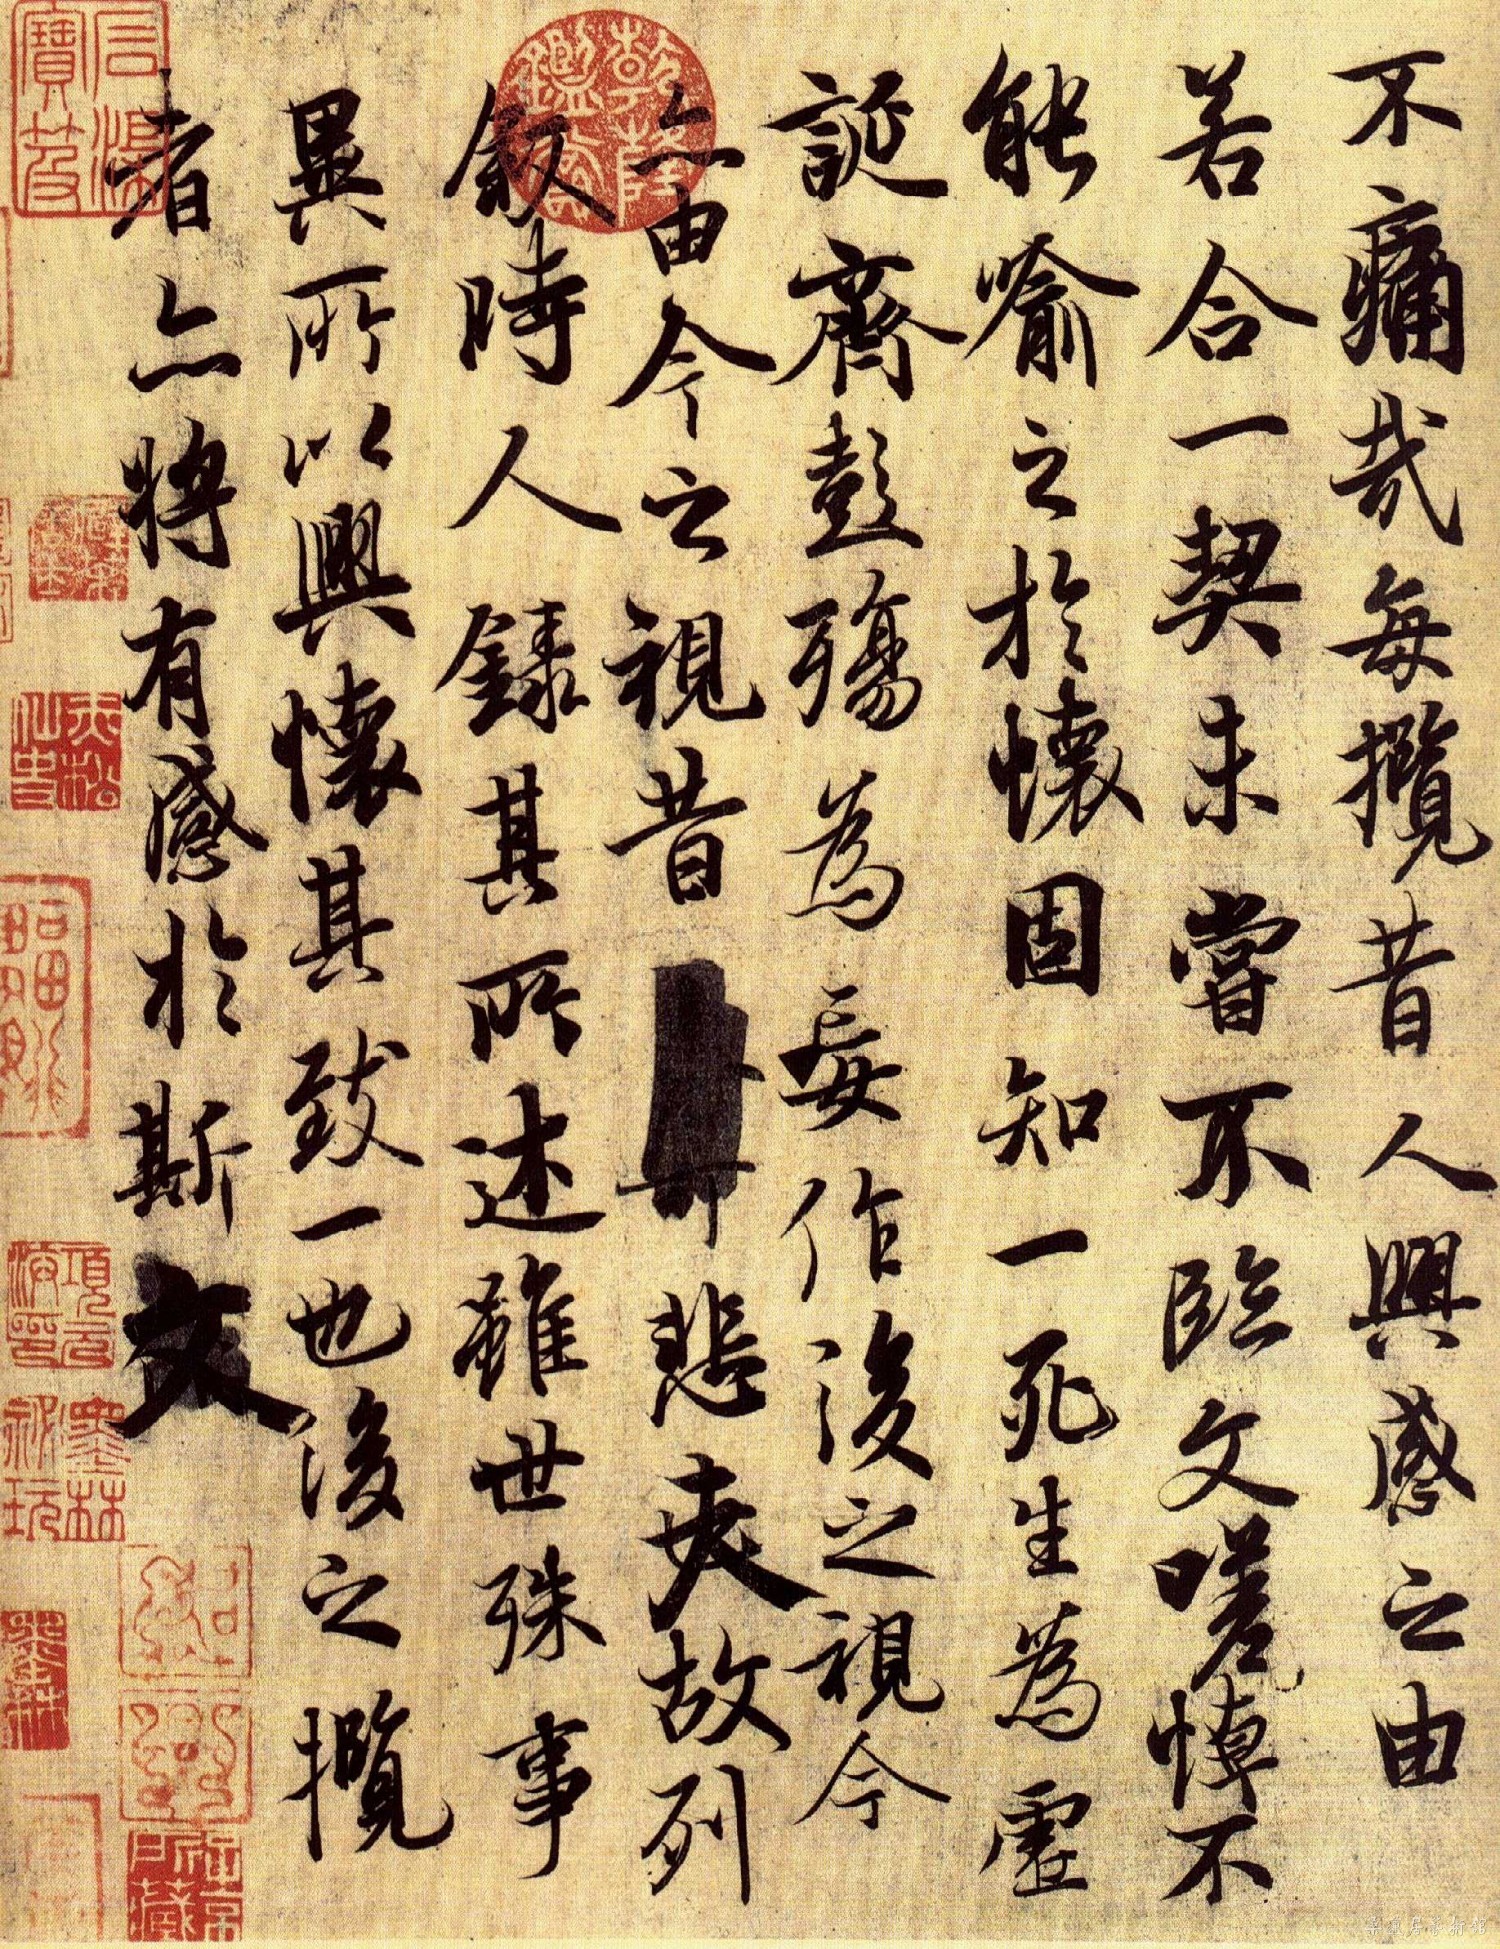 不痛哉每攬昔人興感之由
若合一契未嘗不臨文嗟悼不
能喻之於懷固知一死生為虛
誕齊彭殤為妄作後之視今
亦由今之視昔
悲夫故列
敘時人錄其所述雖世殊事
異所以興懷其致一也後之攬
者亦將有感於斯文
乾隆鑑賞
項元汴印
墨林祕玩